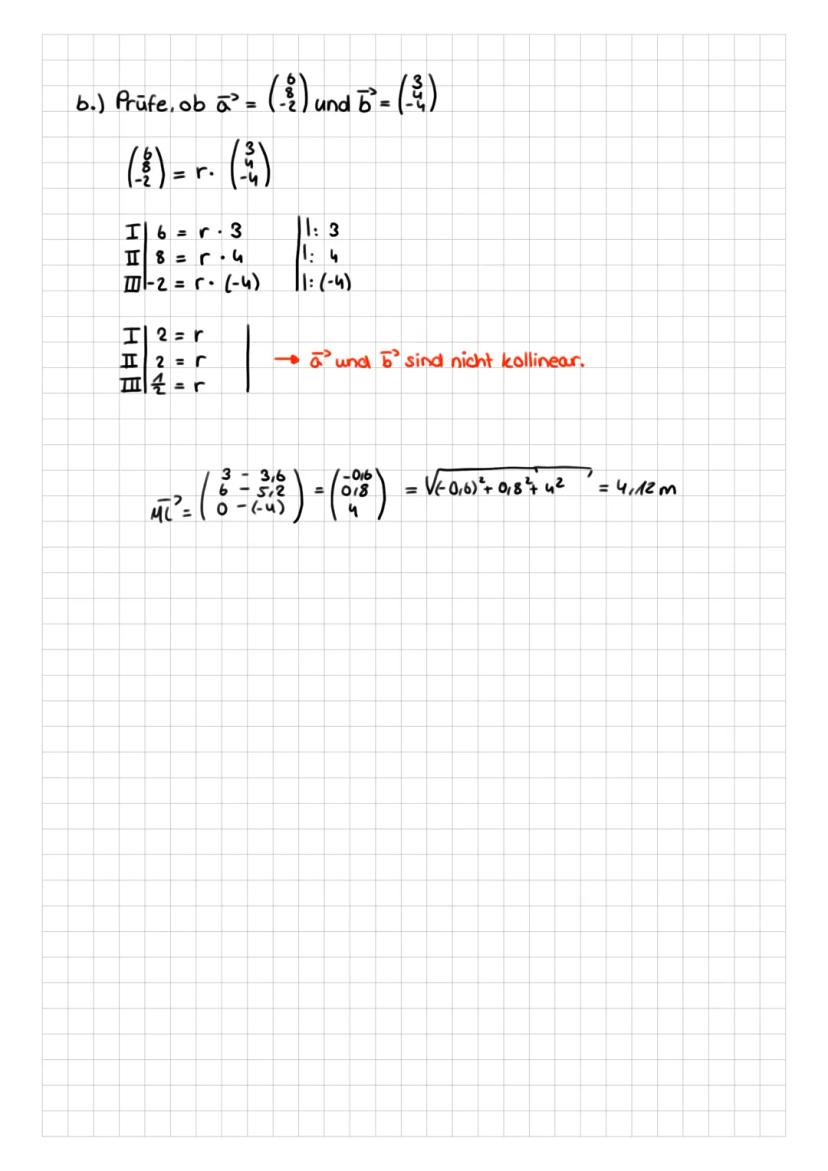 b.) Prüfe, ob a⃗ = (6 8 -2) und b⃗ = (3 4 -4)
(6 8 -2) = r · (3 4 -4)
I | 6 = r · 3 | |: 3
II | 8 = r · 4 | |: 4
III | -2 = r · (-4) | |: (-4)
I | 2 = r |
II | 2 = r | → a⃗ und b⃗ sind nicht kollinear.
III | 1/2 = r |
MC⃗ = (3 - 3,6 6 - 5,2 0 - (-4)) = (-0,6 0,8 4) = √((-0,6)² + 0,8² + 4²) = 4,12 m